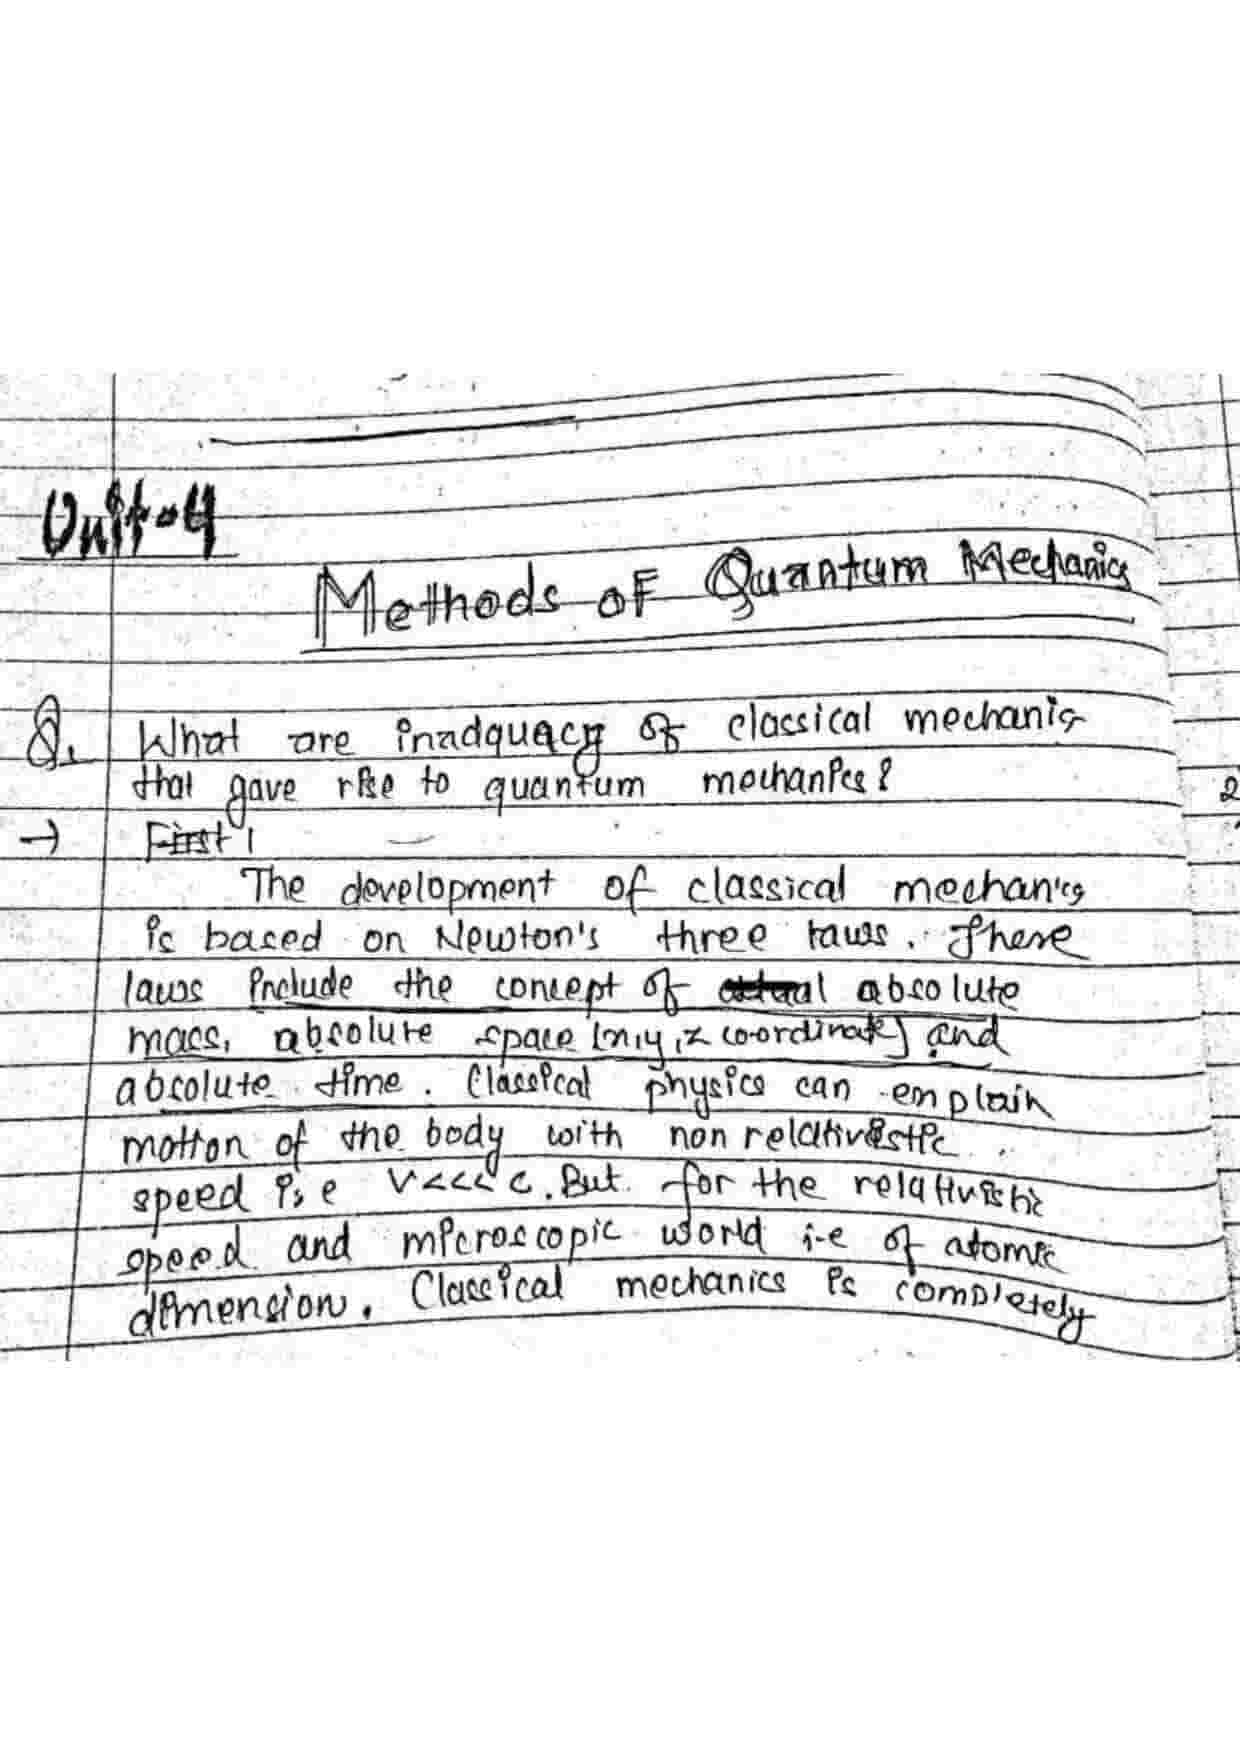 Unit-4
Methods of Quantum Mechanics
Q. What are inadquacy of classical mechanics
that gave rise to quantum mechanics?
→ First 1
The development of classical mechanics
is based on Newton's three laws. These
laws include the concept of absolute
mass, absolute space [x,y,z co-ordinate] and
absolute time. Classical physics can explain
motion of the body with non relativistic
speed i.e V<<< c. But for the relativistic
speed and microscopic world i-e of atomic
dimension. Classical mechanics is completely
2